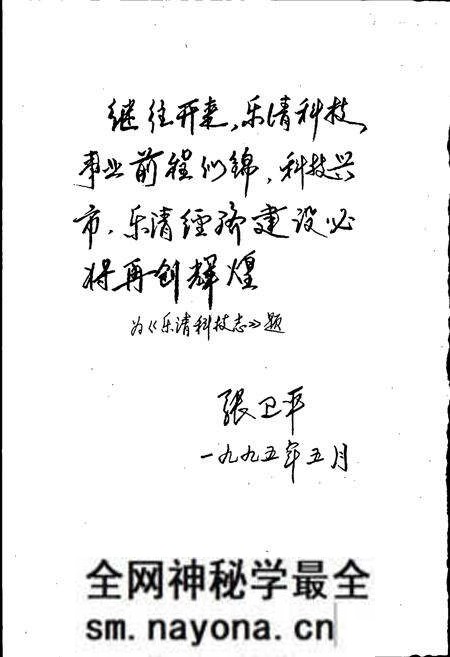 继往开来，乐清科技
事业前程似锦，科技兴
市，乐清经济建设必
将再创辉煌
为《乐清科技志》题
張卫平
一九九五年五月
全网神秘学最全
sm.nayona.cn